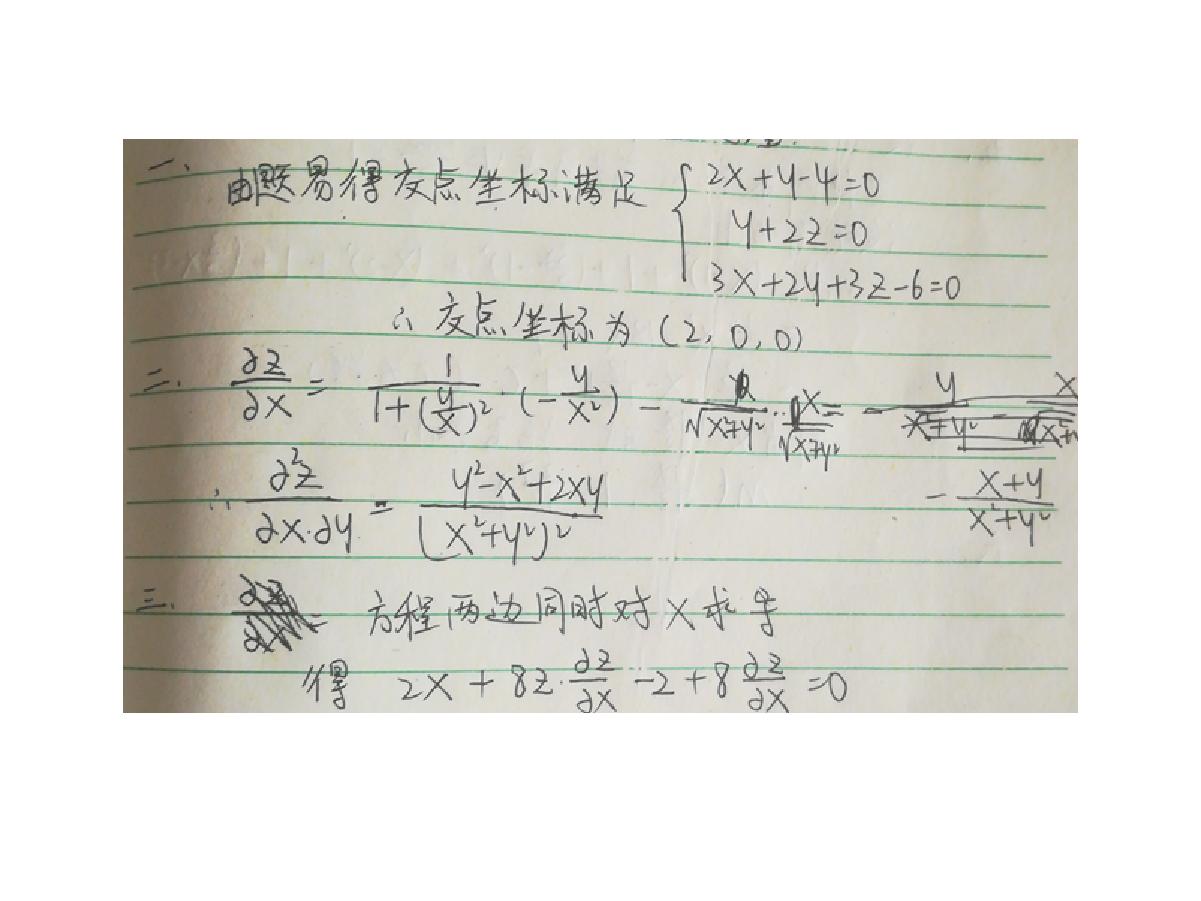 一、由题易得交点坐标满足 { 2x+y-4=0
y+2z=0
3x+2y+3z-6=0
∴ 交点坐标为 (2, 0, 0)
二、 ∂z/∂x = 1/(1+(y/x)²) · (-y/x²) - 1/√(x²+y²) · x/√(x²+y²) = - y/(x²+y²) -
∴ ∂²z/(∂x·∂y) = (y²-x²+2xy)/(x²+y²)² - (x+y)/(x²+y²)
三、 方程两边同时对 x 求导
得 2x + 8z·∂z/∂x - 2 + 8 ∂z/∂x = 0